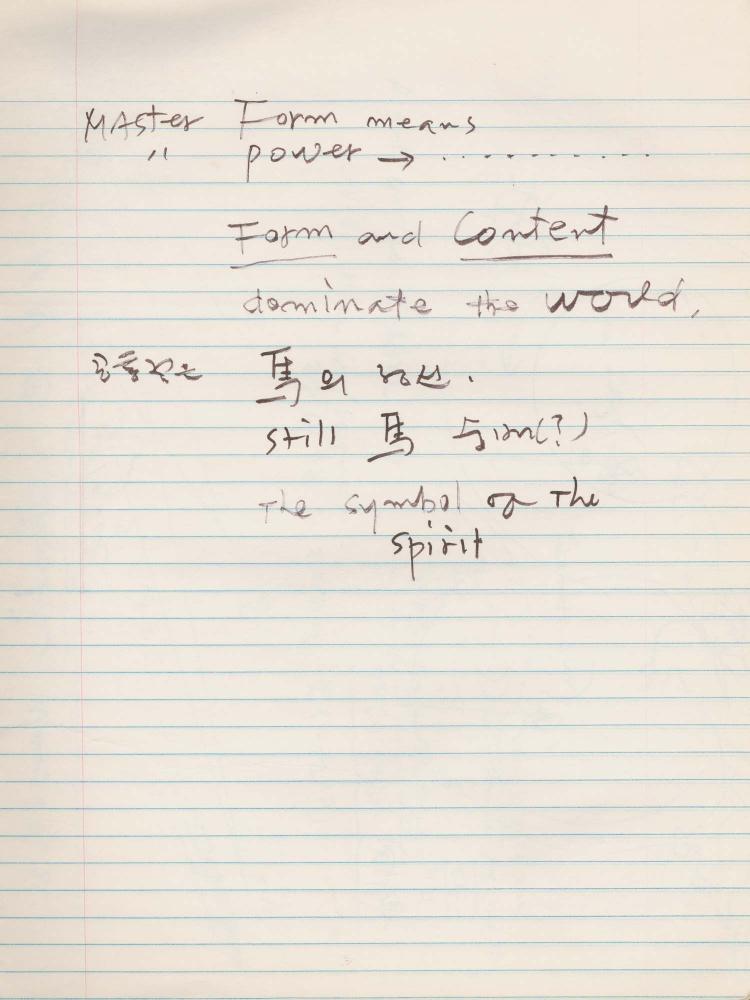 MASter Form means
" power → ...........
Form and Content
dominate the world,
馬의
still 馬 (?)
The symbol of The
spirit